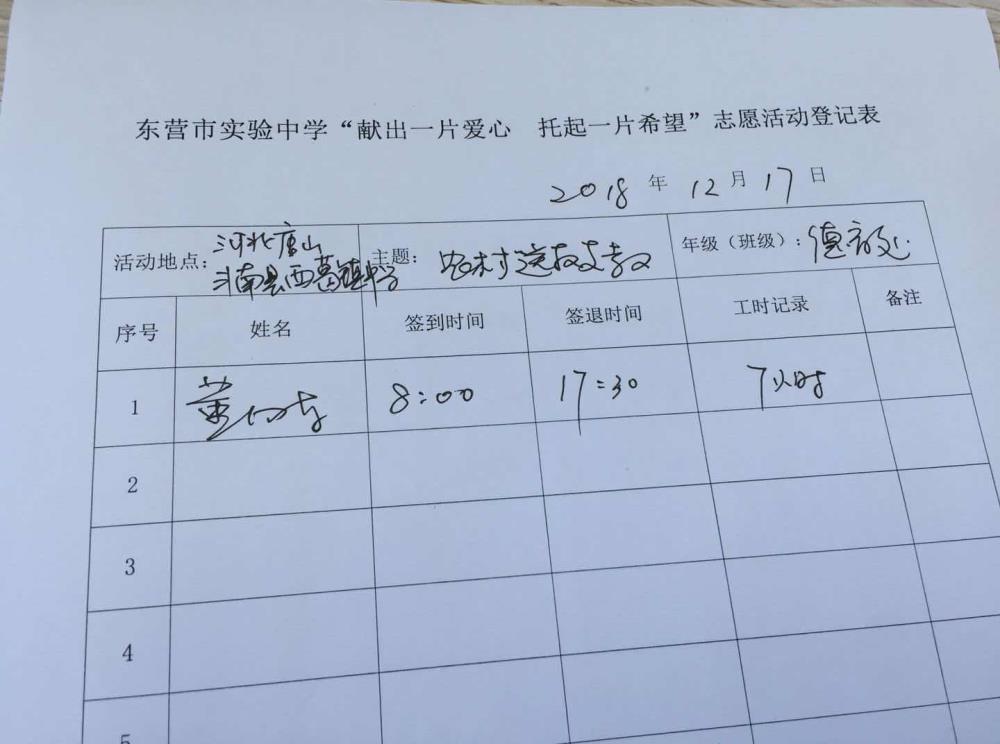 东营市实验中学“献出一片爱心 托起一片希望”志愿活动登记表
2018 年 12 月 17 日
活动地点: 河北唐山 主题: 农村 支教 年级（班级）: 德育处
南县西葛镇中学
序号 姓名 签到时间 签退时间 工时记录 备注
1 董 8:00 17:30 7小时
2
3
4
5